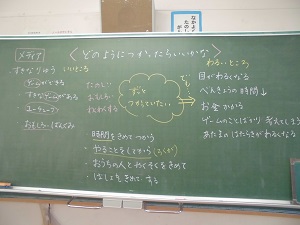 メディア
＜どのようにつかったらいいかな＞
すきなりゆう いいところ
ゲームができる
すきなゲームがある
ユーチューブ
おもしろいばんぐみ
たのしい
おもしろい
わくわくする
ずっと
つかっていたい…
でも
わるいところ
目がわるくなる
べんきょうの時間↓
お金かかる
ゲームのことばかり考えてしまう
あたまのはたらきがわるくなる
・時間をきめてつかう
・やることをしてから
・おうちの人とやくそくをきめて
・ばしょをきめてする